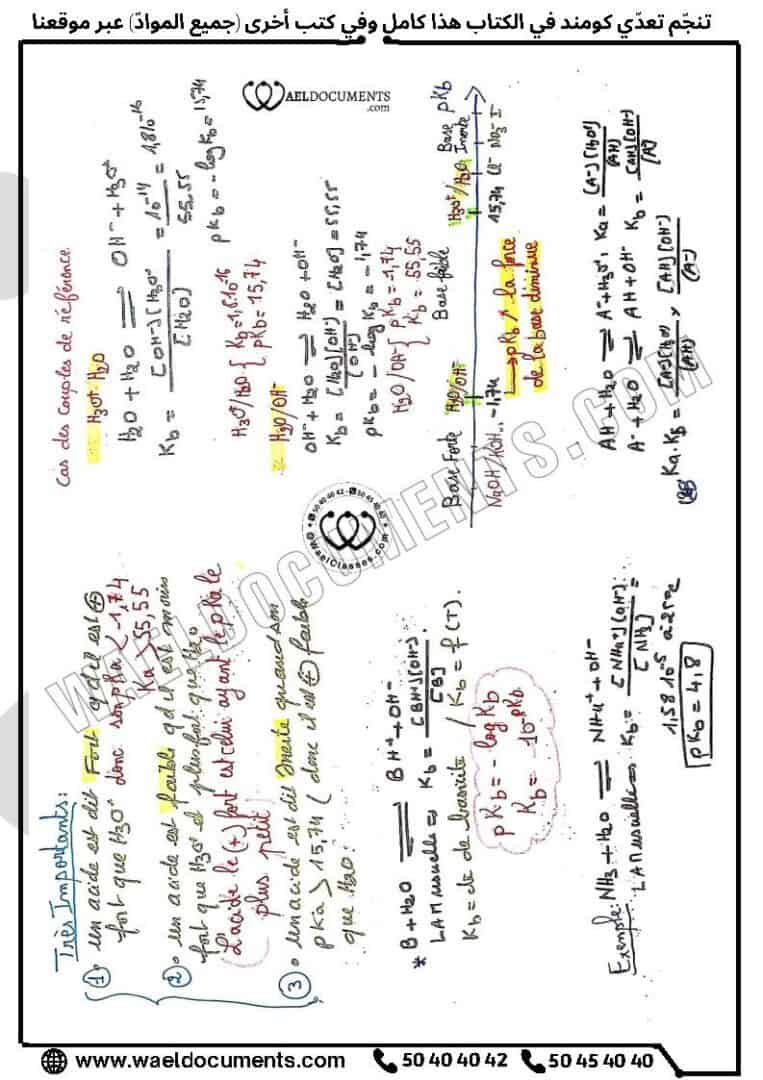 تنجّم تعدّي كومند في الكتاب هذا كامل وفي كتب أخرى (جميع الموادّ) عبر موقعنا
WAELDOCUMENTS
.com
Très Importants:
① • un acide est dit Fort qd il est ⊕
fort que H3O+ donc son pka < -1,74
Ka > 55,55
② • un acide est faible qd il est moins
fort que H3O+ et plus fort que H2O
L'acide le (+) fort est celui ayant le pka le
plus petit
③ • un acide est dit Inerte quand son
pka > 15,74 (donc il est ⊕ faible
que H2O.
* B + H2O ⇌ BH+ + OH-
LAM usuelle ⇒ Kb = [BH+][OH-] / [B]
Kb = cte de basicité / Kb = f(T).
pKb = - log Kb
Kb = 10-pKb
Exemple: NH3 + H2O ⇌ NH4+ + OH-
LAM usuelle ⇒ Kb = [NH4+][OH-] / [NH3] =
1,58 10-5 à 25°C
pKb = 4,8
Cas des Couples de référence
H3O+/H2O
H2O + H2O ⇌ OH- + H3O+
Kb = [OH-][H3O+] / [H2O] = 10-14 / 55.55 = 1,8 10-16
pKb = - log Kb = 15,74
H3O+/H2O { Kb = 1,8.10-16
pKb = 15,74
H2O/OH-
OH- + H2O ⇌ H2O + OH-
Kb = [H2O][OH-] / [OH-] = [H2O] = 55,55
pKb = - log Kb = -1,74
H2O/OH- { pKb = -1,74
Kb = 55.55
Base Forte H2O/OH- Base faible H3O+/H2O Base Inerte pKb
NaOH/KOH... -1,74 15,74 Cl- NO3- I-
↳ pKb ↗ la force
de la base diminue
AH + H2O ⇌ A- + H3O+, Ka = [A-][H3O+] / [AH]
A- + H2O ⇌ AH + OH- Kb = [AH][OH-] / [A-]
Ka.Kb = [A-][H3O+] / [AH] × [AH][OH-] / [A-]
WAELDOCUMENTS.COM
50 40 40 42 - 50 45 40 40
WaelClasses.com
www.waeldocuments.com 50 40 40 42 50 45 40 40